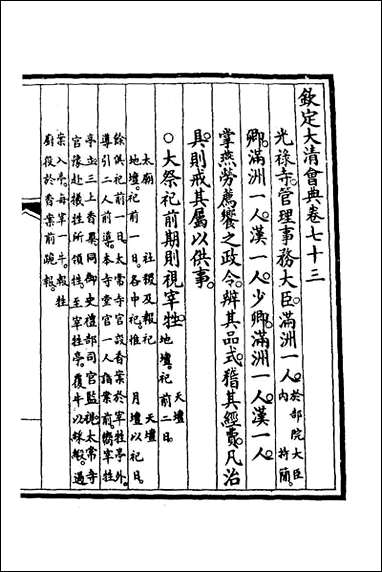 欽定大清會典卷七十三
光祿寺管理事務大臣滿洲一人於部院大臣內特簡
卿滿洲一人漢一人少卿滿洲一人漢一人
掌燕勞薦饗之政令辨其品式稽其經費凡治
具則戒其屬以供事
○大祭祀前期則視宰牲天壇地壇祀前二日
太廟社稷及報祀天壇
地壇祀前一日各中祀惟月壇以祀日
餘俱祀前一日太常寺官設香案於宰牲亭外
導引二人前導本寺堂官一人詣案前
亭立三上香畢同御史禮部司官監視太常寺
官隊赴犧牲所領牲至宰牲亭覆牛以綵緞過
案入亭每宰一牛報牲
廚役於香案前跪報